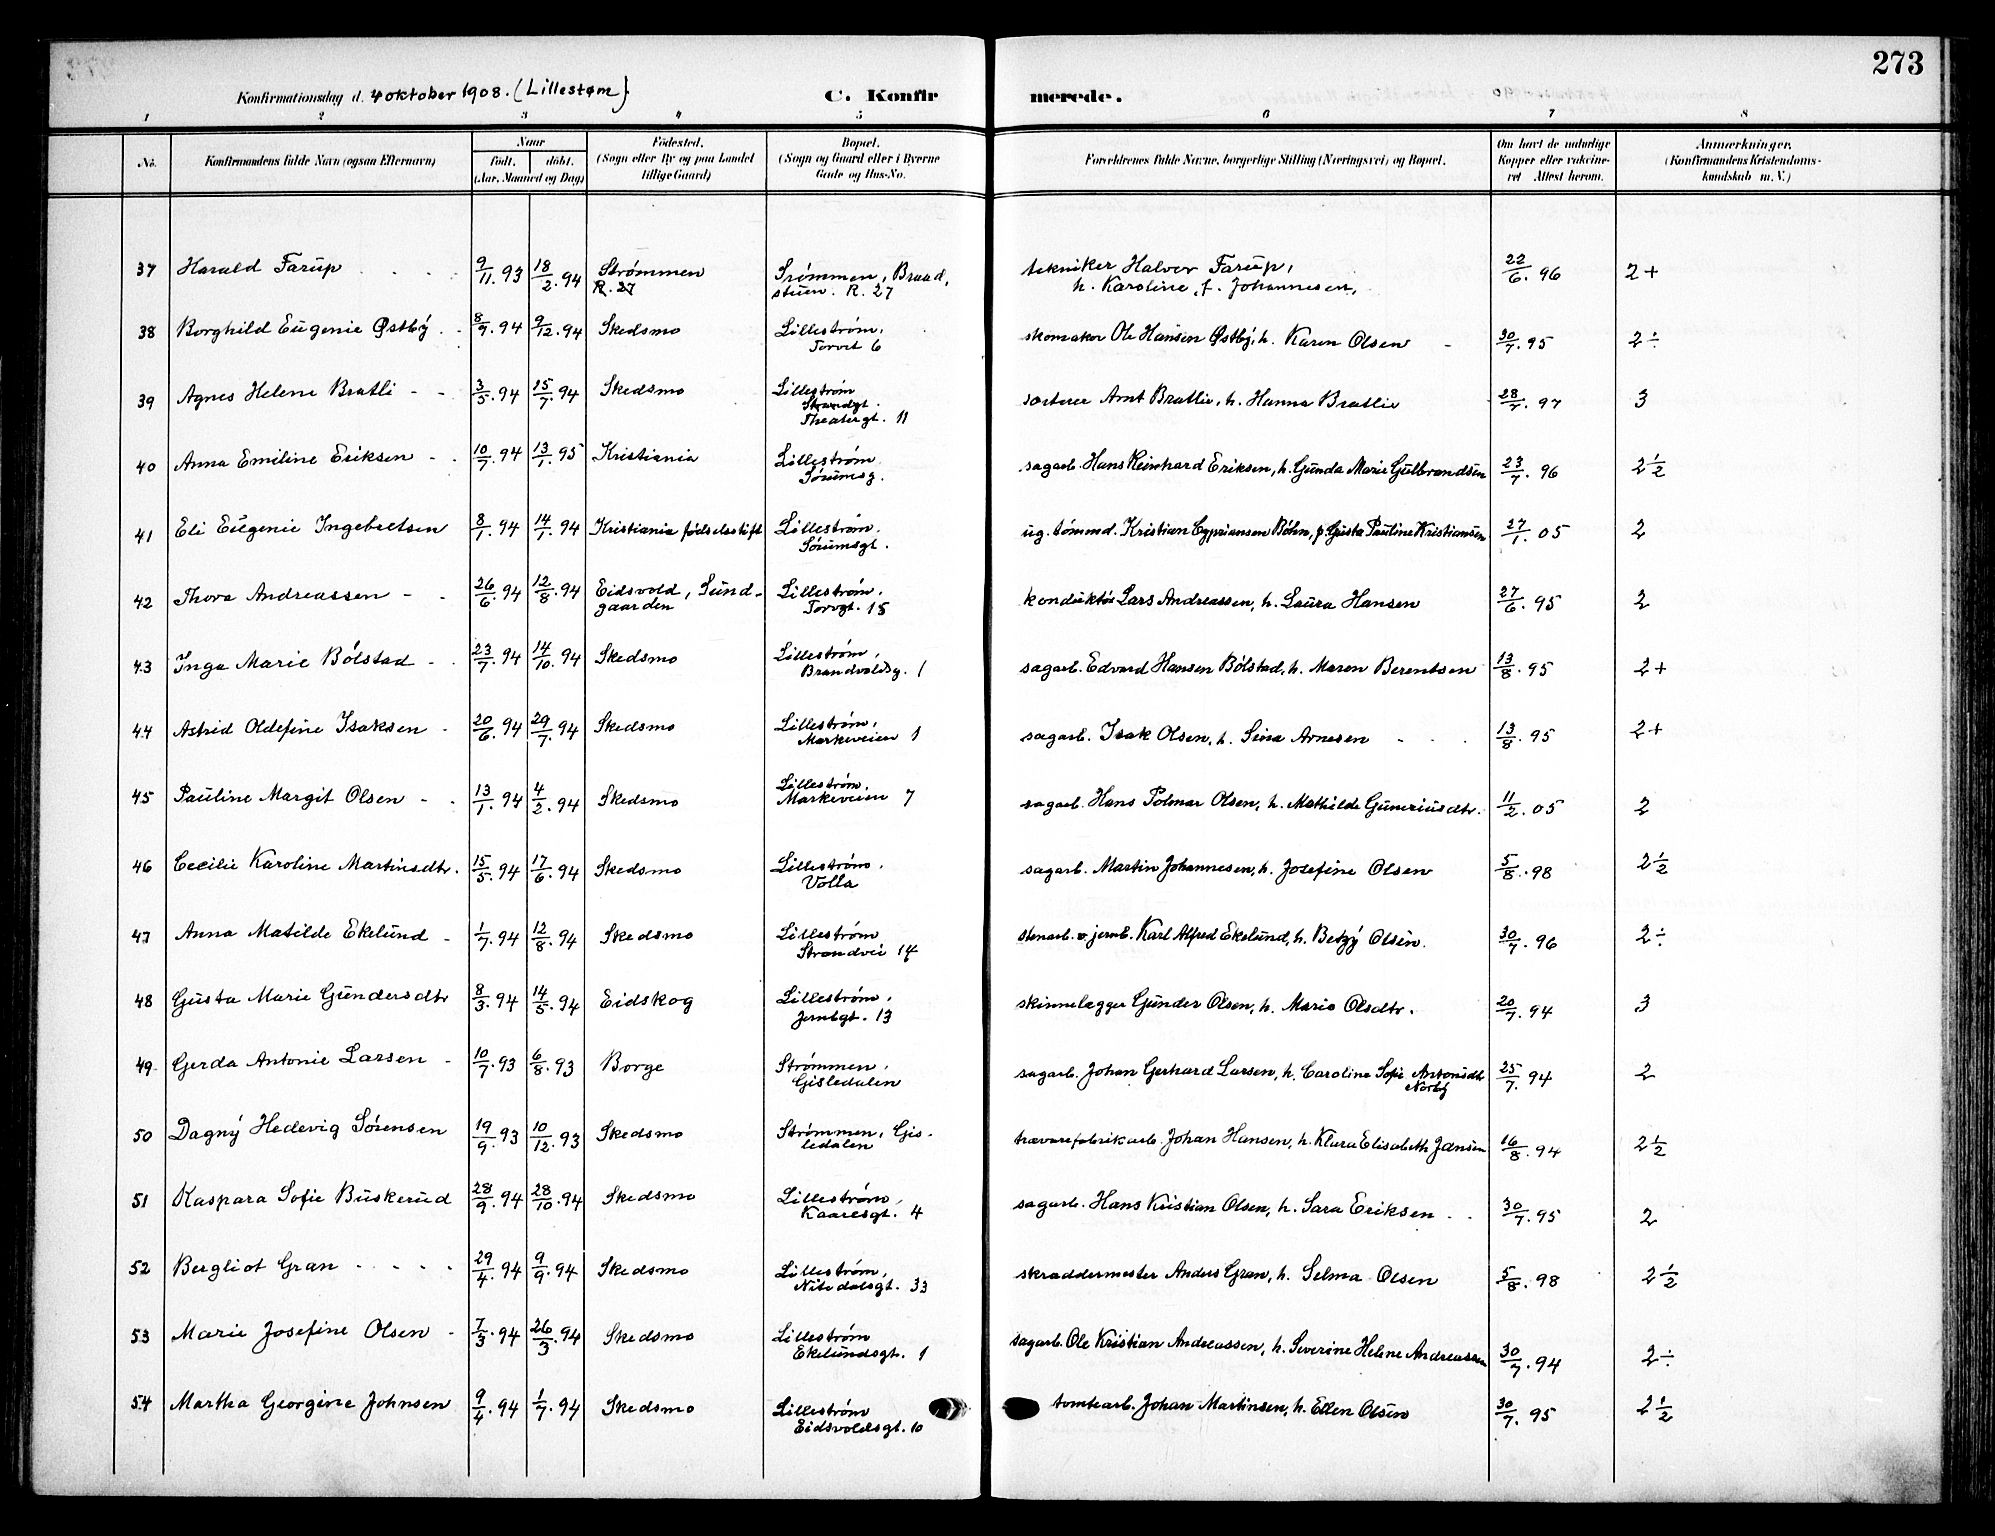 273
Konfirmationsdag d. 4 oktober 1908. (Lillestøm)
C. Konfir merede.
1 2 3 4 5 6 7 8
No. Konfirmandens fulde Navn (ogsaa Efternavn) Naar født. døbt. (Aar, Maaned og Dag) Fødested. (Sogn eller By og paa Landet tillige Gaard) Bopæl. (Sogn og Gaard eller i Byerne Gade og Hus-No. Forældrenes fulde Navne, borgerlige Stilling (Næringsvei) og Bopæl. Om havt de naturlige Kopper eller vakcineret Attest herom. Anmærkninger. (Konfirmandens Kristendomskundskab m. V.)
37 Harald Farup 9/11. 93 18/2. 94 Strømmen R. 27 Srømmen, Braad, stuen. R. 27 tekniker Halvor Farup, h. Karoline, f. Johannesen, 22/6. 96 2+
38 Borghild Eugenie Østby 8/9. 94 9/12. 94 Skedsmo Lillestrøm, Torvet 6 skomaker Ole Hansen Østby, h. Karen Olsen 30/7. 95 2÷
39 Agnes Helene Bratli 3/5. 94 15/7. 94 Skedsmo Lillestrøm Strandgt. Theatergt. 11 sorterer Arnt Bratlie, h. Hanna Bratlie 28/7. 97 3
40 Anna Emiline Eriksen 10/7. 94 13/1. 95 Kristiania Lillestrøm Sørumsg. sagarb. Hans Reinhard Eriksen, h. Gunda Marie Gulbrandsen 23/7. 96 2½
41 Eli Eugenie Ingebretsen 8/1. 94 14/1. 94 Kristiania fødselsstift Lillestrøm. Sørumsgt. ug. tømmd. Kristian Cypriansen Bøhn, p. Gusta Pauline Kristiansen 27/1. 05 2
42 Thora Andreassen 26/6. 94 12/8. 94 Eidsvold, Sundgaarden Lillestrøm, Torvgt. 15 konduktør Lars Andreassen, h. Laura Hansen 27/6. 95 2
43 Inga Marie Bølstad 23/7. 94 14/10. 94 Skedsmo Lillestrøm, Brandvoldsg. 1 sagarb. Edvard Hansen Bølstad, h. Maren Berentsen 13/8. 95 2+
44 Astrid Oldefine Isaksen 20/6. 94 29/7. 94 Skedsmo Lillestrøm, Markeveien 1 sagarb. Isak Olsen, h. Sina Arnesen 13/8. 95 2+
45 Pauline Margit Olsen 13/1. 94 4/2. 94 Skedsmo Lillestrøm, Markeveien 7 sagarb. Hans Polmar Olsen, h. Mathilde Guneriusdtr. 11/2. 05 2
46 Cecilie Karoline Martinsdtr. 15/5. 94 17/6. 94 Skedsmo Lillestrøm, Volla sagarb. Martin Johannesen, h. Josefine Olsen 5/8. 98 2½
47 Anna Matilde Ekelund 1/7. 94 12/8. 94 Skedsmo Lillestrøm Strandvei 14 stenarb. v. jernb. Karl Alfred Ekelund, h. Betzy Olsen. 30/7. 96 2÷
48 Gusta Marie Gundersdtr 8/3. 94 14/5. 94 Eidskog Lillestrøm, Jernbgt. 13 skinnelægger Gunder Olsen, h. Marie Olsdtr. 20/7. 94 3
49 Gerda Antonie Larsen 10/7. 93 6/8. 93 Borge Strømmen, Gisledalen sagarb. Johan Gerhard Larsen, h. Caroline Sofie Antonsdtr Norby 25/7. 94 2
50 Dagny Hedevig Sørensen 19/9. 93 10/12. 93 Skedsmo Strømmen, Gisledalen trævarefabrikarb. Johan Hansen, h. Klara Elisabeth Jansen 16/8. 94 2½
51 Kaspara Sofie Buskerud 28/9. 94 28/10. 94 Skedsmo Lillestrøm, Kaaresgt. 4 sagarb. Hans Kristian Olsen, h. Sara Eriksen 30/7. 95 2
52 Bergliot Gran 29/4. 94 9/9. 94 Skedsmo Lillestrøm, Nitedalsgt. 33 skræddermester Anders Gran, h. Selma Olsen 5/8. 98 2½
53 Marie Josefine Olsen 7/3. 94 26/3. 94 Skedsmo Lillestrøm Ekelundsgt. 1 sagarb. Ole Kristian Andreassen, h. Severine Helene Andreassen 30/7. 94 2÷
54 Martha Georgine Johnsen 9/4. 94 1/7. 94 Skedsmo Lillestrøm Eidsvoldsgt. 10 tomtearb. Johan Martinsen, h. Ellen Olsen 30/7. 95 2½